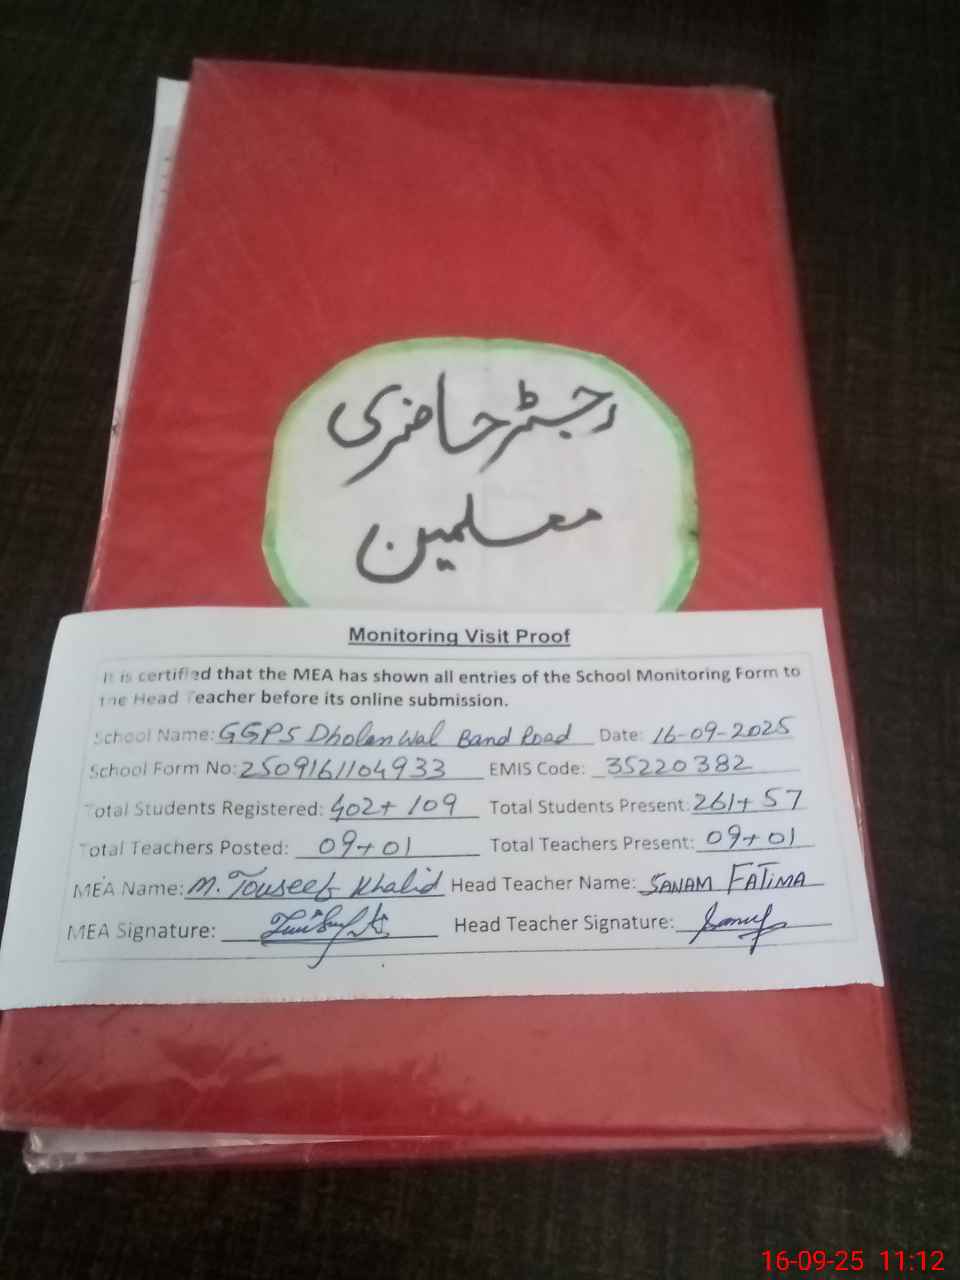 رجسٹر حاضری
معلمین
Monitoring Visit Proof
It is certified that the MEA has shown all entries of the School Monitoring Form to
the Head Teacher before its online submission.
School Name: GGPS Dholanwal Band Road Date: 16-09-2025
School Form No: 2509161104933 EMIS Code: 35220382
Total Students Registered: 402+109 Total Students Present: 261+57
Total Teachers Posted: 09+01 Total Teachers Present: 09+01
MEA Name: M. Touseef Khalid Head Teacher Name: SANAM FATIMA
MEA Signature: Head Teacher Signature:
16-09-25 11:12